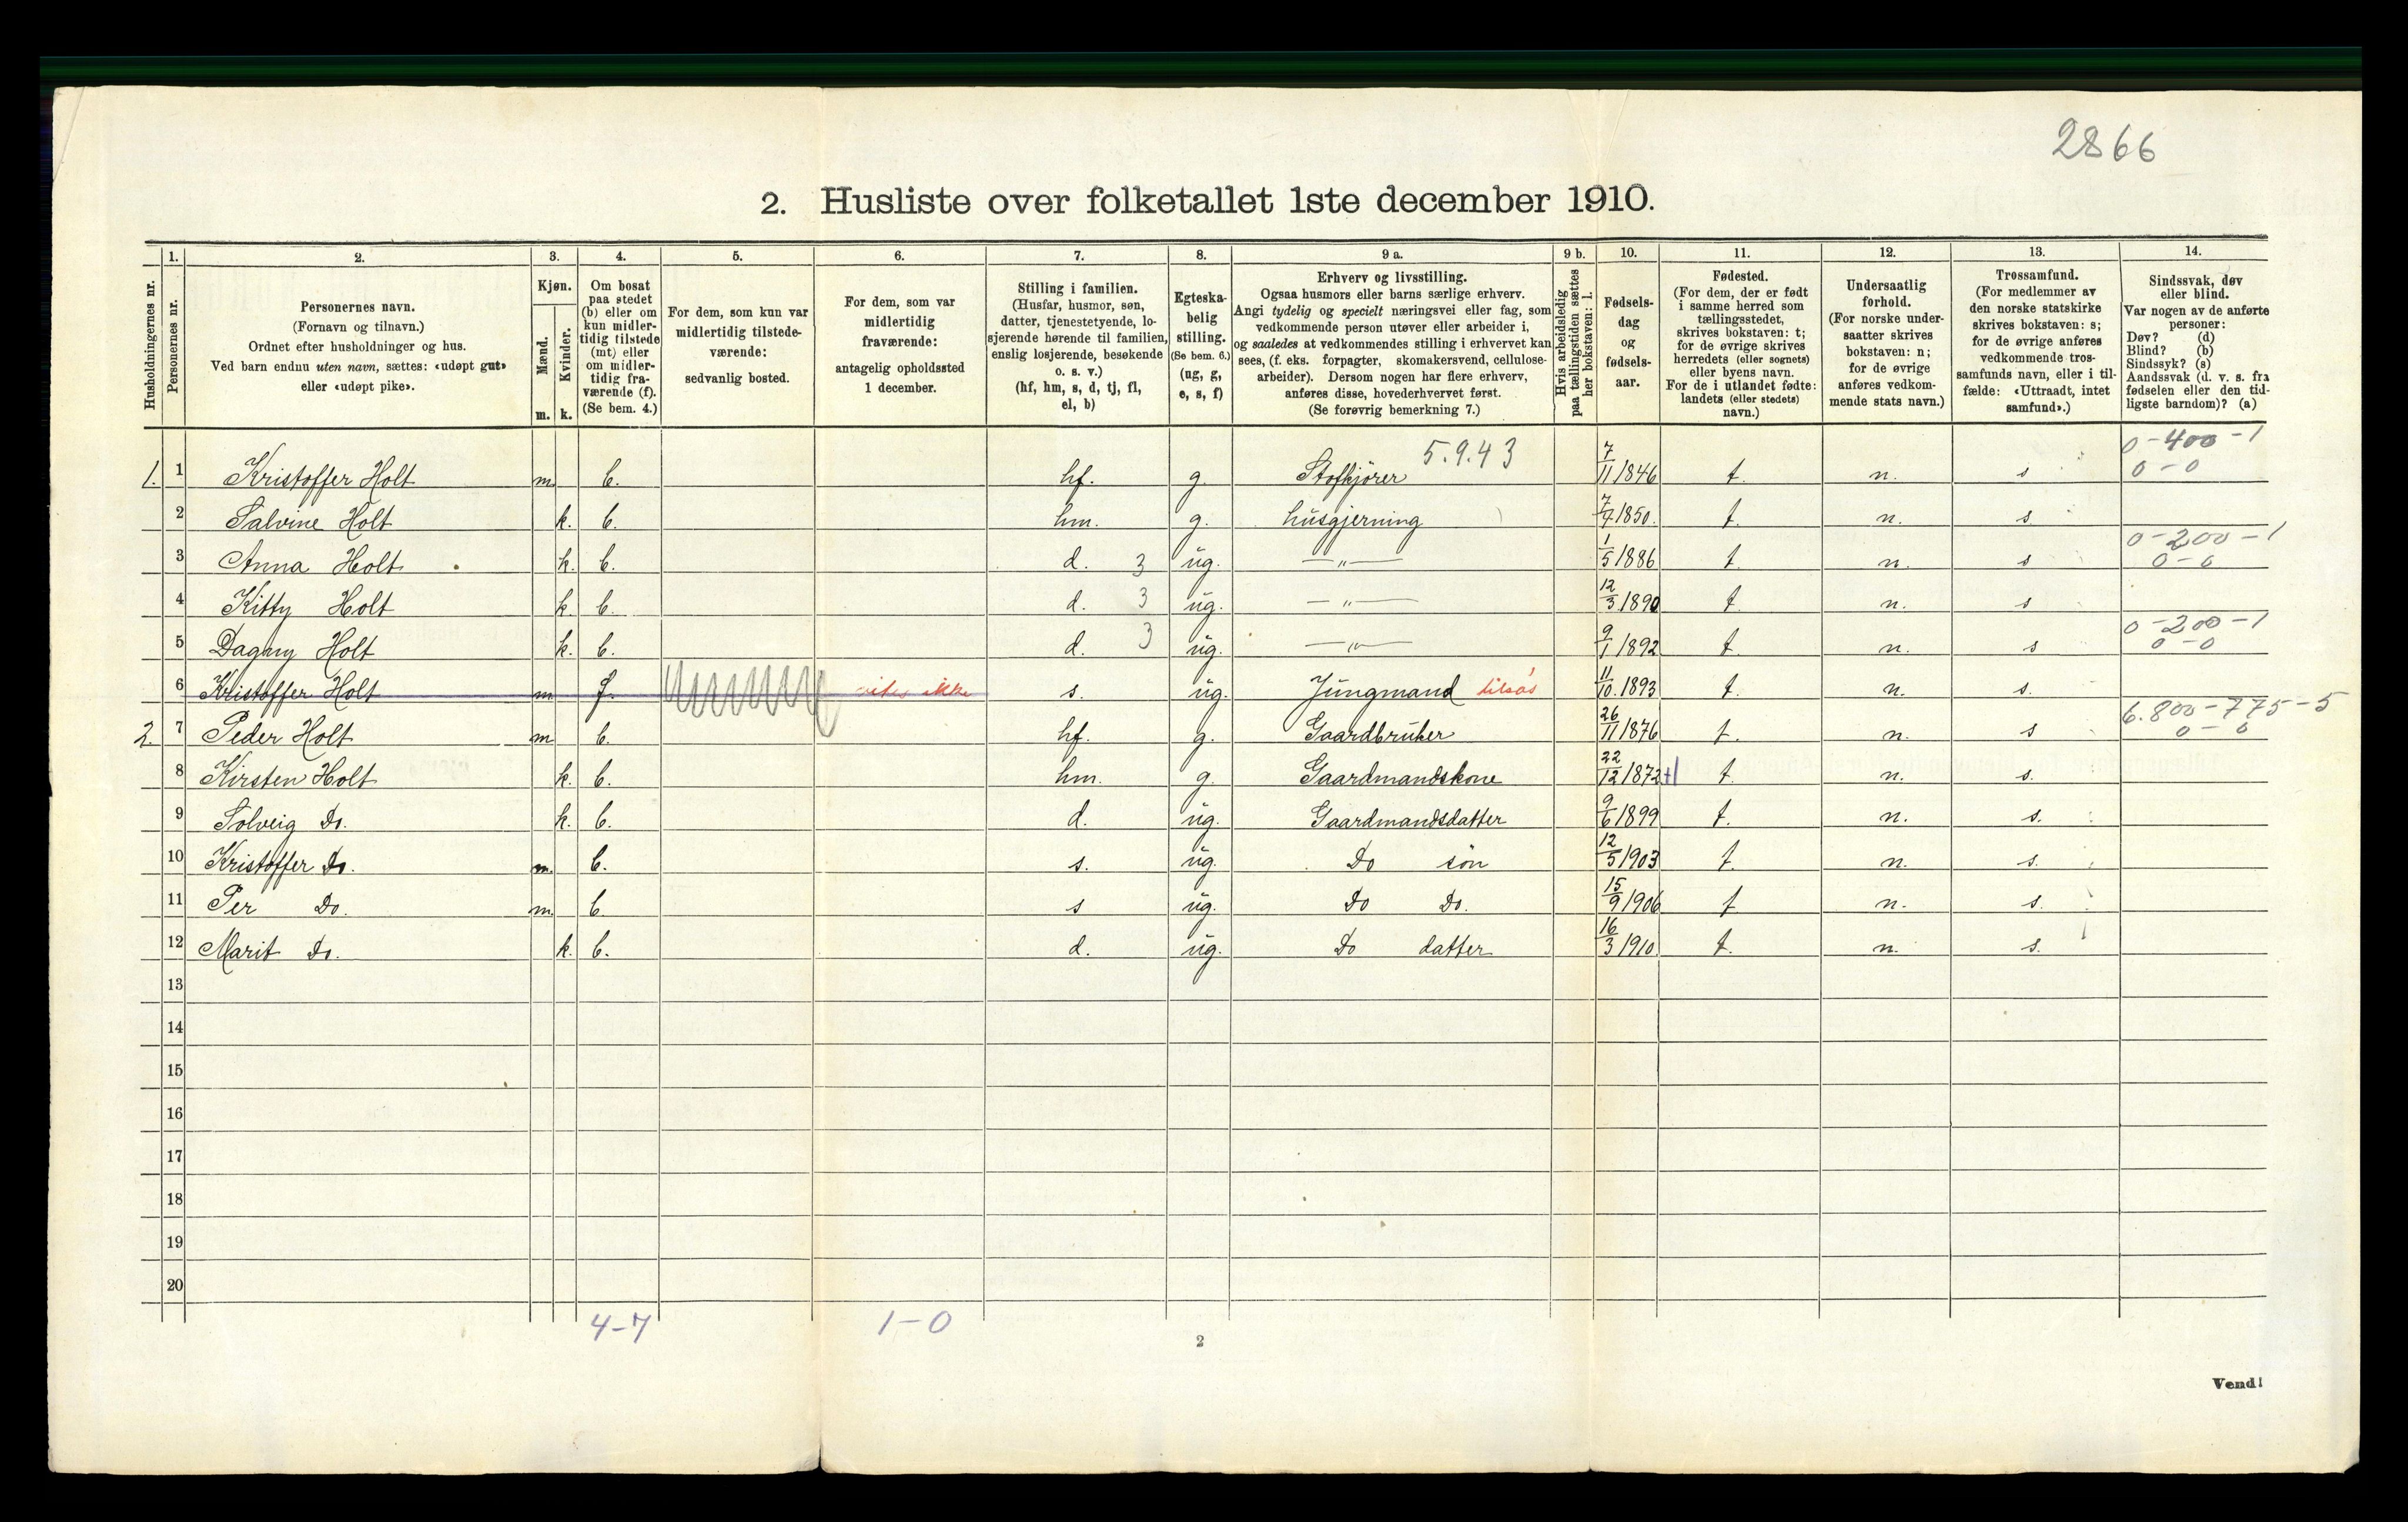 2866
2. Husliste over folketallet 1ste december 1910.
Husholdningernes nr.
1. Personernes nr.
2. Personernes navn.
(Fornavn og tilnavn.)
Ordnet efter husholdninger og hus.
Ved barn endnu uten navn, sættes: «udøpt gut»
eller «udøpt pike».
3. Kjøn.
Mænd. m.
Kvinder. k.
4. Om bosat
paa stedet
(b) eller om
kun midler-
tidig tilstede
(mt) eller
om midler-
tidig fra-
værende (f).
(Se bem. 4.)
5. For dem, som kun var
midlertidig tilstede-
værende:
sedvanlig bosted.
6. For dem, som var
midlertidig
fraværende:
antagelig opholdssted
1 december.
7. Stilling i familien.
(Husfar, husmor, søn,
datter, tjenestetyende, lo-
sjerende hørende til familien,
enslig losjerende, besøkende
o. s. v.)
(hf, hm, s, d, tj, fl,
el, b)
8. Egteska-
belig
stilling.
(Se bem. 6.)
(ug, g,
e, s, f)
9 a. Erhverv og livsstilling.
Ogsaa husmors eller barns særlige erhverv.
Angi tydelig og specielt næringsvei eller fag, som
vedkommende person utøver eller arbeider i,
og saaledes at vedkommendes stilling i erhvervet kan
sees, (f. eks. forpagter, skomakersvend, cellulose-
arbeider). Dersom nogen har flere erhverv,
anføres disse, hovederhvervet først.
(Se forøvrig bemerkning 7.)
9 b. Hvis arbeidsledig
paa tællingstiden sættes
her bokstaven: l.
10. Fødsels-
dag
og
fødsels-
aar.
11. Fødested.
(For dem, der er født
i samme herred som
tællingsstedet,
skrives bokstaven: t;
for de øvrige skrives
herredets (eller sognets)
eller byens navn.
For de i utlandet fødte:
landets (eller stedets)
navn.)
12. Undersaatlig
forhold.
(For norske under-
saatter skrives
bokstaven: n;
for de øvrige
anføres vedkom-
mende stats navn.)
13. Trossamfund.
(For medlemmer av
den norske statskirke
skrives bokstaven: s;
for de øvrige anføres
vedkommende tros-
samfunds navn, eller i til-
fælde: «Uttraadt, intet
samfund».)
14. Sindssvak, døv
eller blind.
Var nogen av de anførte
personer:
Døv? (d)
Blind? (b)
Sindssyk? (s)
Aandssvak (d. v. s. fra
fødselen eller den tid-
ligste barndom)? (a)
5.9.43 0-400-1
1. 1 Kristoffer Holt m b. hf. g. 7/11 1846 t. n. s 0-0
2 Salvine Holt k. b. hm. g. husgjerning 7/7 1850. t. n. s
0-200-1
3 Anna Holt k. b. d. 3 ug. —„— 1/5 1886 t. n. s 0-0
4 Kitty Holt k. b. d. 3 ug. —„— 12/3 1890 t. n. s
0-200-1
5 Dagny Holt k. b. d. 3 ug. —„— 9/1 1892 t. n. s 0-0
6 Kristoffer Holt m f. vites ikke s. ug. Jungmand tilsøs 11/10. 1893 t. n. s.
6.800-775-5
2. 7 Peder Holt m b. hf. g. Gaardbruker 26/11 1876 t. n. s 0-0
8 Kirsten Holt k. b. hm. g. Gaardmandskone 22/12 1872 t. n. s.
9 Solveig Do. k. b. d. ug. Gaardmandsdatter 9/6 1899 t. n. s.
10 Kristoffer Do. m. b. s. ug. Do søn 12/5 1903 t. n. s.
11 Per Do. m. b s ug. Do Do. 15/9 1906 t n. s.
12 Marit Do. k. b. d. ug. Do datter 16/3 1910. t. n. s.
13
14
15
16
17
18
19
20
4-7 1-0
2
Vend!